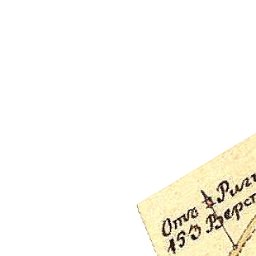 Отъ Риг
153 Верс